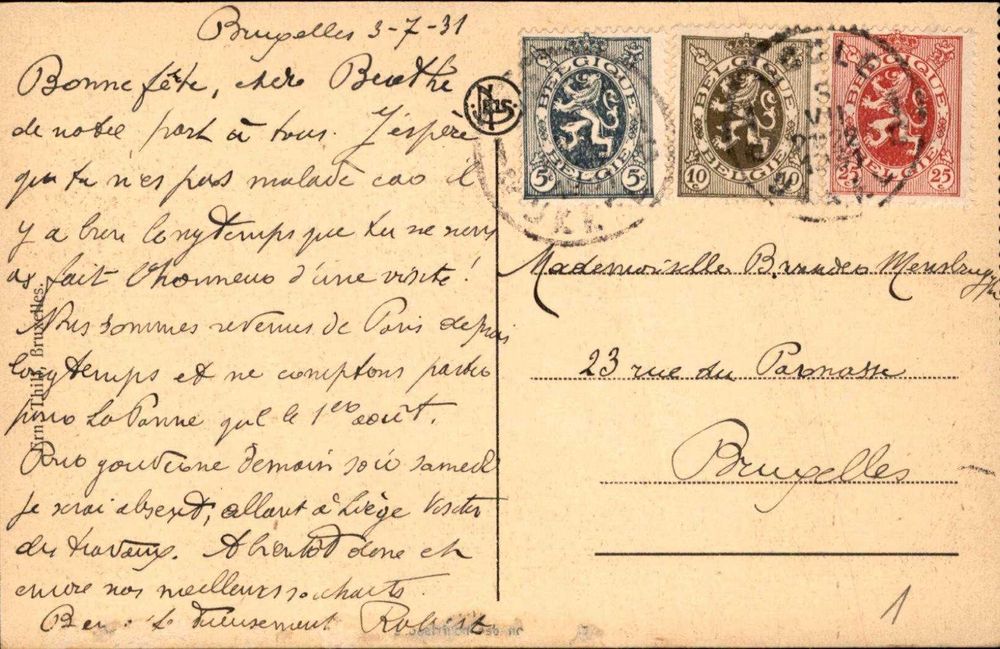 Bruxelles 3-7-31
Bonne fête, chère Berthe
de notre part à tous. J'espère
que tu n'es pas malade car il
y a bien longtemps que tu ne nous
as fait l'honneur d'une visite!
Nous sommes revenus de Paris depuis
longtemps et ne comptons partir
pour La Panne qu'le 1er août.
demain soir samedi
je serai absent, allant à Liège visiter
des travaux. A bientôt donc et
encore nos meilleurs souhaits.
Robert
Ern. Thill, Bruxelles.
NELS
BELGIQUE
BELGIE
5c 5c
BELGIQUE
BELGIE
10c 10c
BELGIQUE
BELGIE
25c 25c
UKKEL
Mademoiselle
23 rue du Parnasse
Bruxelles
1